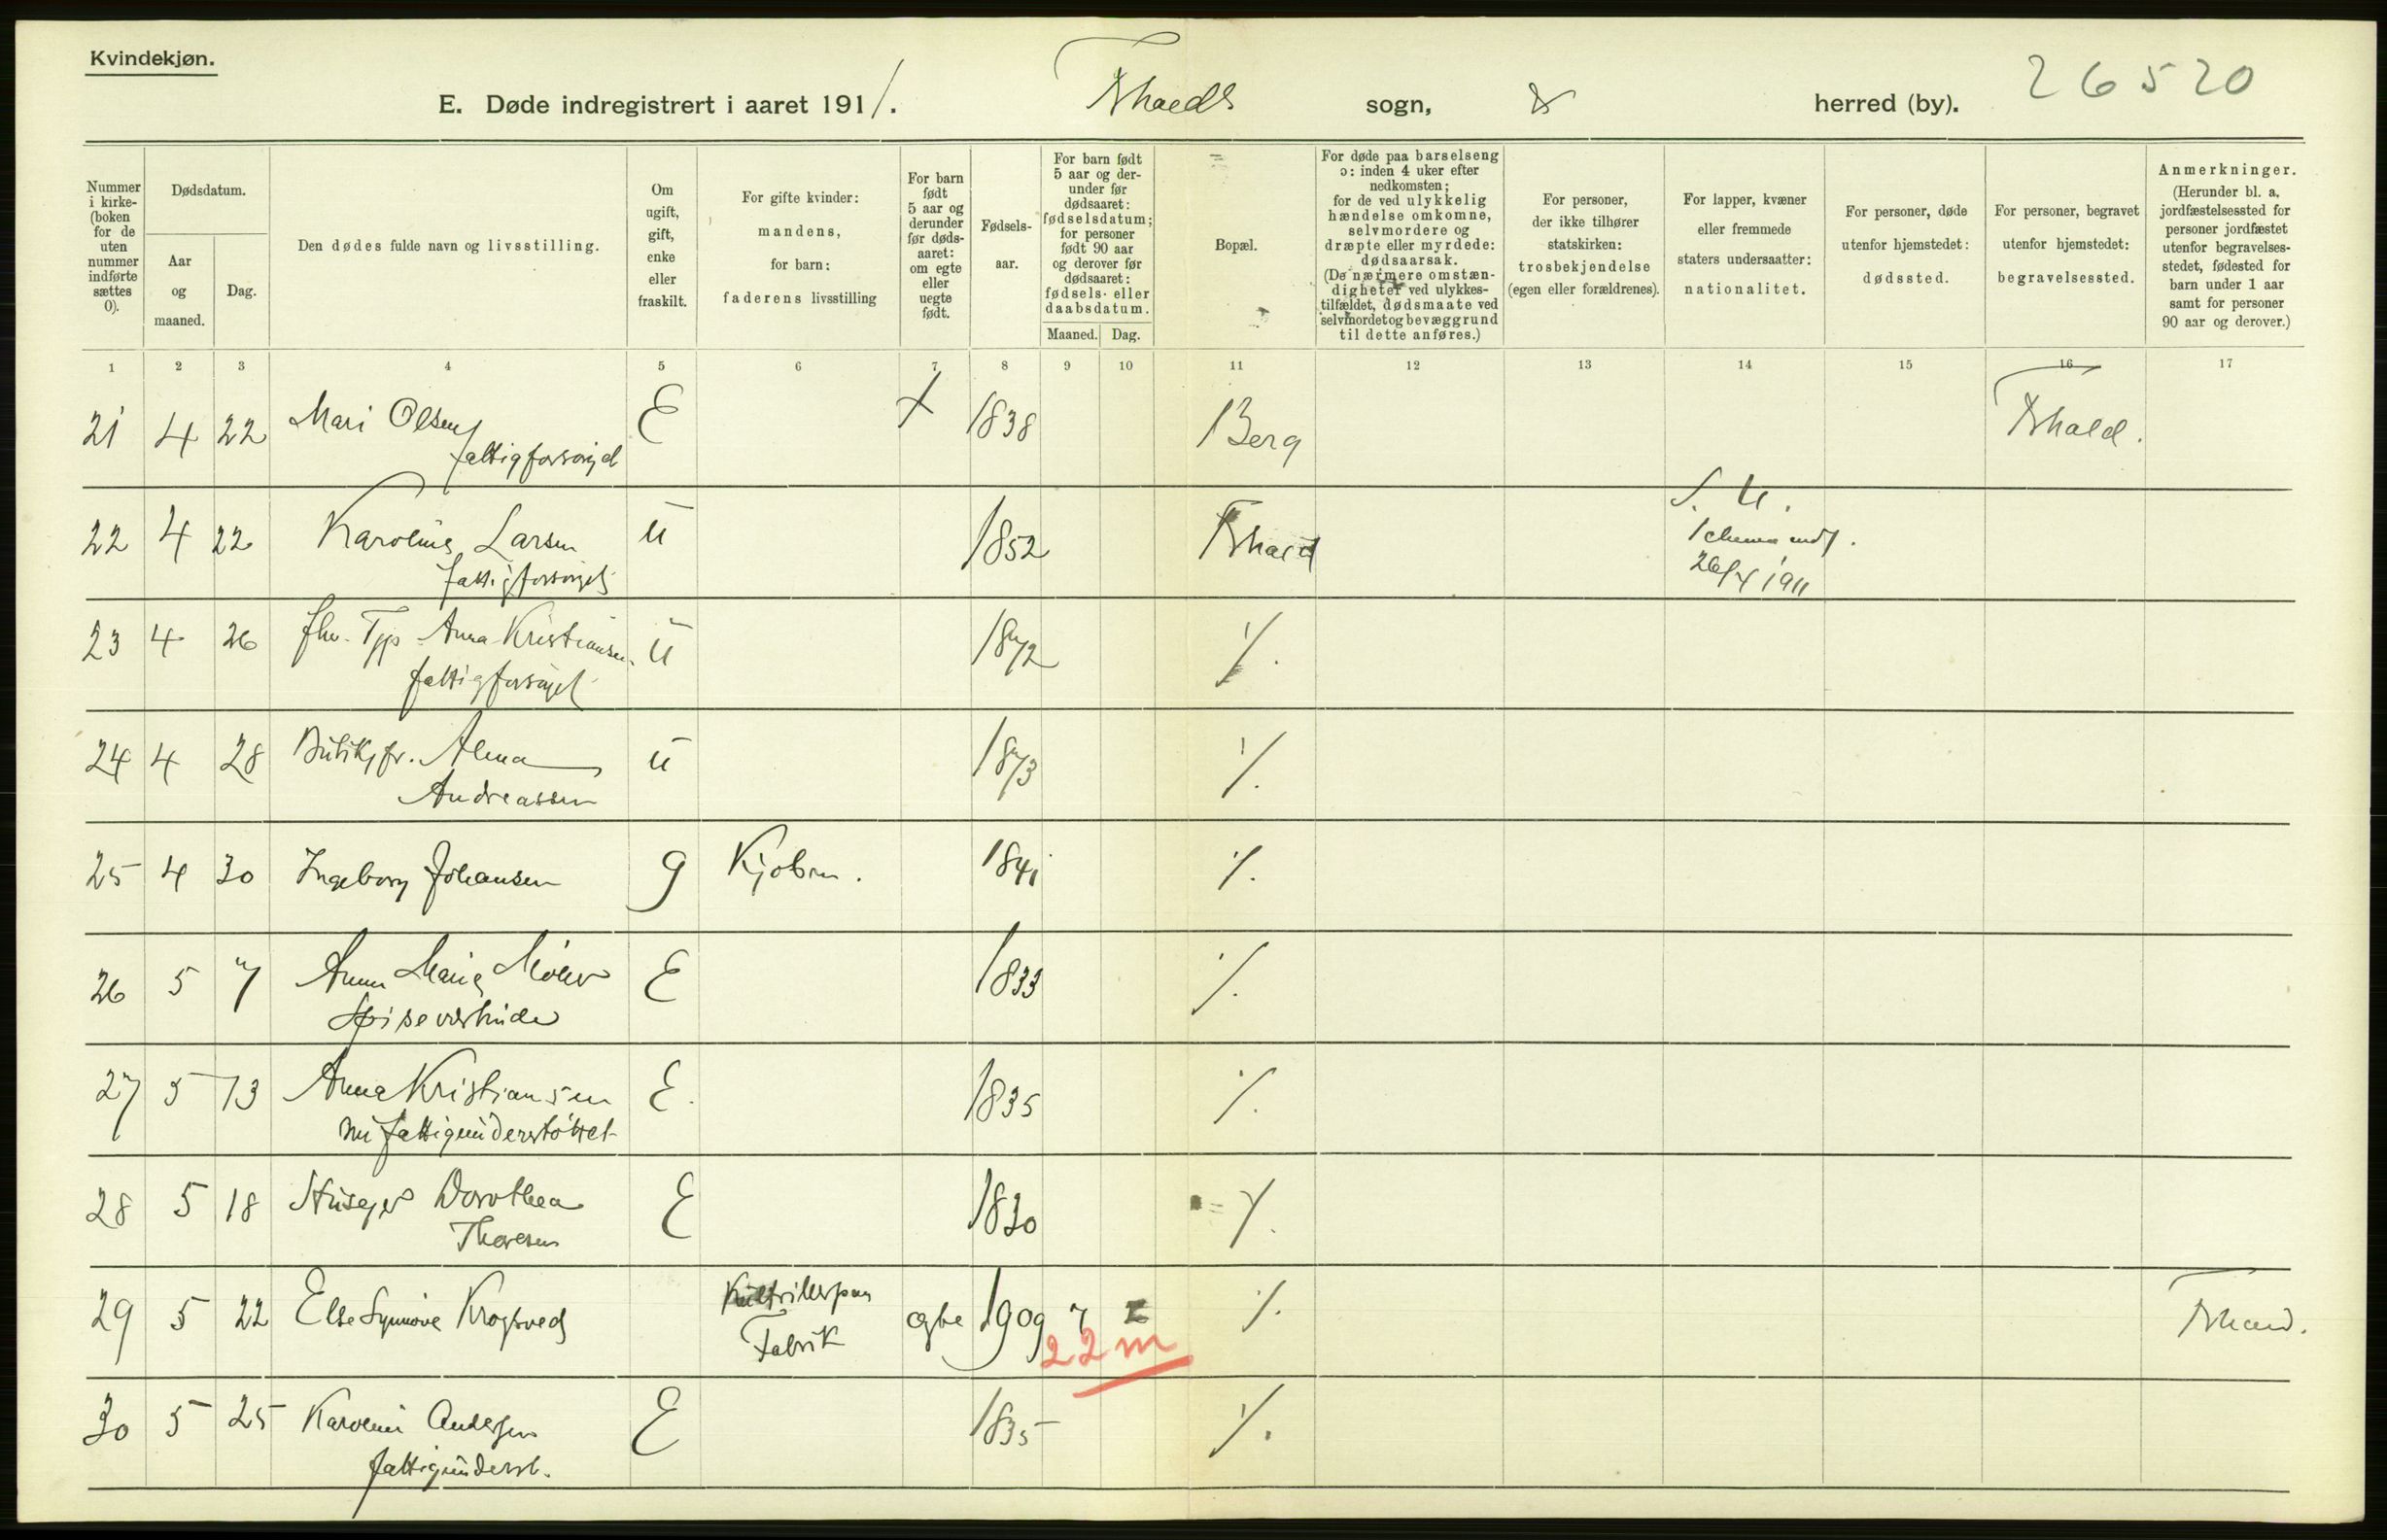 Kvindekjøn.
E. Døde indregistrert i aaret 1911. Fhalds sogn, herred (by). 26520
Nummer i kirkeboken (for de uten nummer indførte sættes 0).
Dødsdatum.
Aar og maaned.
Dag.
Den dødes fulde navn og livsstilling.
Om ugift, gift, enke eller fraskilt.
For gifte kvinder: mandens, for barn: faderens livsstilling
For barn født 5 aar og derunder før dødsaaret: om egte eller uegte født.
Fødselsaar.
For barn født 5 aar og derunder før dødsaaret: fødselsdatum; for personer født 90 aar og derover før dødsaaret: fødsels- eller daabsdatum.
Maaned. Dag.
Bopæl.
For døde paa barselseng ɔ: inden 4 uker efter nedkomsten; for de ved ulykkelig hændelse omkomne, selvmordere og dræpte eller myrdede: dødsaarsak. (De nærmere omstændigheter ved ulykkestilfældet, dødsmaate ved selvmordet og bevæggrund til dette anføres.)
For personer, der ikke tilhører statskirken: trosbekjendelse (egen eller forældrenes).
For lapper, kvæner eller fremmede staters undersaatter: nationalitet.
For personer, døde utenfor hjemstedet: dødssted.
For personer, begravet utenfor hjemstedet: begravelsessted.
Anmerkninger. (Herunder bl. a. jordfæstelsessted for personer jordfæstet utenfor begravelsesstedet, fødested for barn under 1 aar samt for personer 90 aar og derover.)
1 2 3 4 5 6 7 8 9 10 11 12 13 14 15 16 17
21 4 22 Mari Olsen E 1838 Berg Fhald.
fattigforsörget
22 4 22 Karoline Larsen u 1852 Fhald S. U.
fattigforsörget 26/4 1911
23 4 26 fhv. Anna Kristiansen u 1872 ./.
fattigforsörget
24 4 28 Butikfr. Alma u 1873 ./.
Andreassen
25 4 30 Ingeborg Johansen g Kjöbm. 1841 ./.
26 5 7 Anna Marie E 1833 ./.
Spiseværtinde
27 5 13 Anna Kristiansen E. 1835 ./.
nu fattigunderstöttet
28 5 18 Huseier Dorothea E 1830 ./.
Thoresen
29 5 22 Else Synnöve egte 1909 7 ./. Fhald.
Fabrik 22 m
30 5 25 Karoline Andersen E 1835 ./.
fattigunderst.